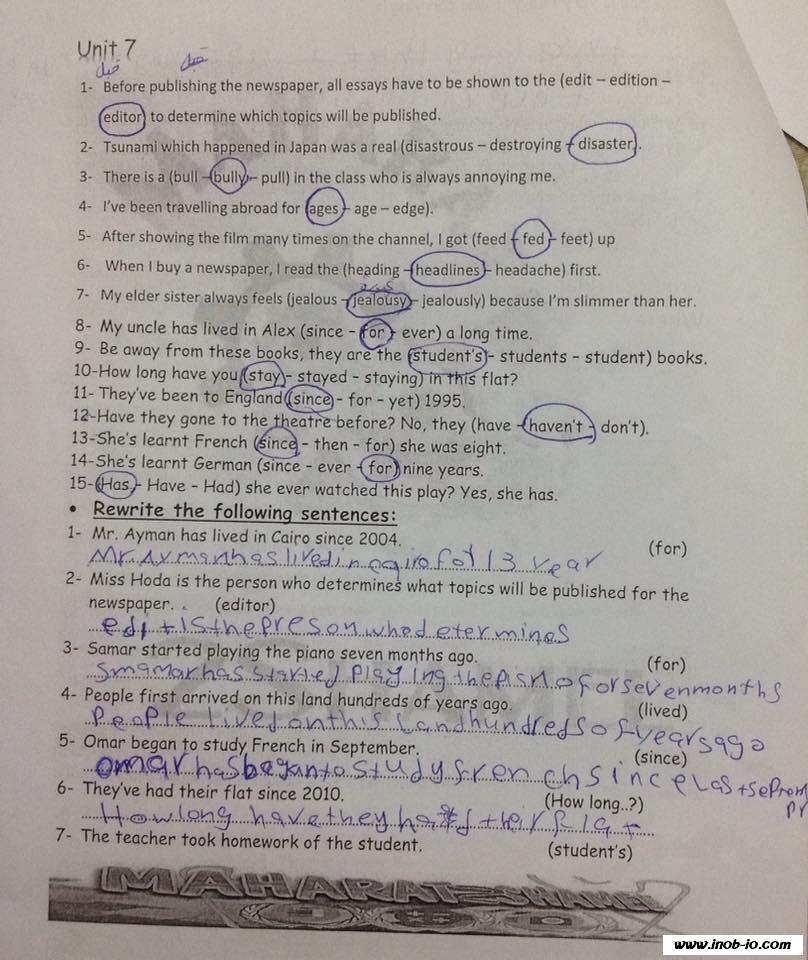 Unit 7
قبل قبل
1- Before publishing the newspaper, all essays have to be shown to the (edit – edition –
editor) to determine which topics will be published.
2- Tsunami which happened in Japan was a real (disastrous – destroying – disaster).
3- There is a (bull – bully – pull) in the class who is always annoying me.
4- I've been travelling abroad for (ages – age – edge).
5- After showing the film many times on the channel, I got (feed – fed – feet) up
6- When I buy a newspaper, I read the (heading – headlines – headache) first.
7- My elder sister always feels (jealous – jealousy – jealously) because I'm slimmer than her.
8- My uncle has lived in Alex (since - for - ever) a long time.
9- Be away from these books, they are the (student's - students - student) books.
10-How long have you (stay - stayed - staying) in this flat?
11- They've been to England (since - for - yet) 1995.
12-Have they gone to the theatre before? No, they (have - haven't - don't).
13-She's learnt French (since - then - for) she was eight.
14-She's learnt German (since - ever - for) nine years.
15-(Has - Have - Had) she ever watched this play? Yes, she has.
• Rewrite the following sentences:
1- Mr. Ayman has lived in Cairo since 2004. (for)
Mr. Aymanhas livedin cqiro fot 13 year
2- Miss Hoda is the person who determines what topics will be published for the
newspaper. (editor)
edit isthepresonwhodetermines
3- Samar started playing the piano seven months ago. (for)
smamarhas started playing the pisno forsevenmonths
4- People first arrived on this land hundreds of years ago. (lived)
People livedonthis landhundredsofyearsago
5- Omar began to study French in September. (since)
omarhasbeganto study french since last seprem
pr
6- They've had their flat since 2010. (How long..?)
Howlong havethey had therflat
7- The teacher took homework of the student. (student's)
MAHARAT SHAMEL
www.inob-io.com